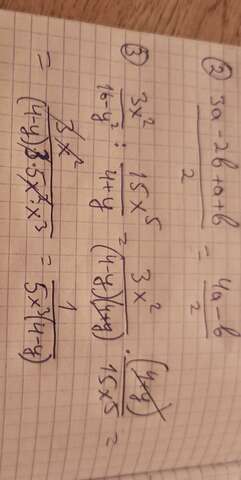 ② (3a-2b+a+b)/2 = (4a-b)/2
③ 3x²/(16-y²) : 15x⁵/(4+y) = 3x²/((4-y)(4+y)) · (4+y)/(15x⁵) =
= 3x²/((4-y)3·5x²·x³) = 1/(5x³(4-y))